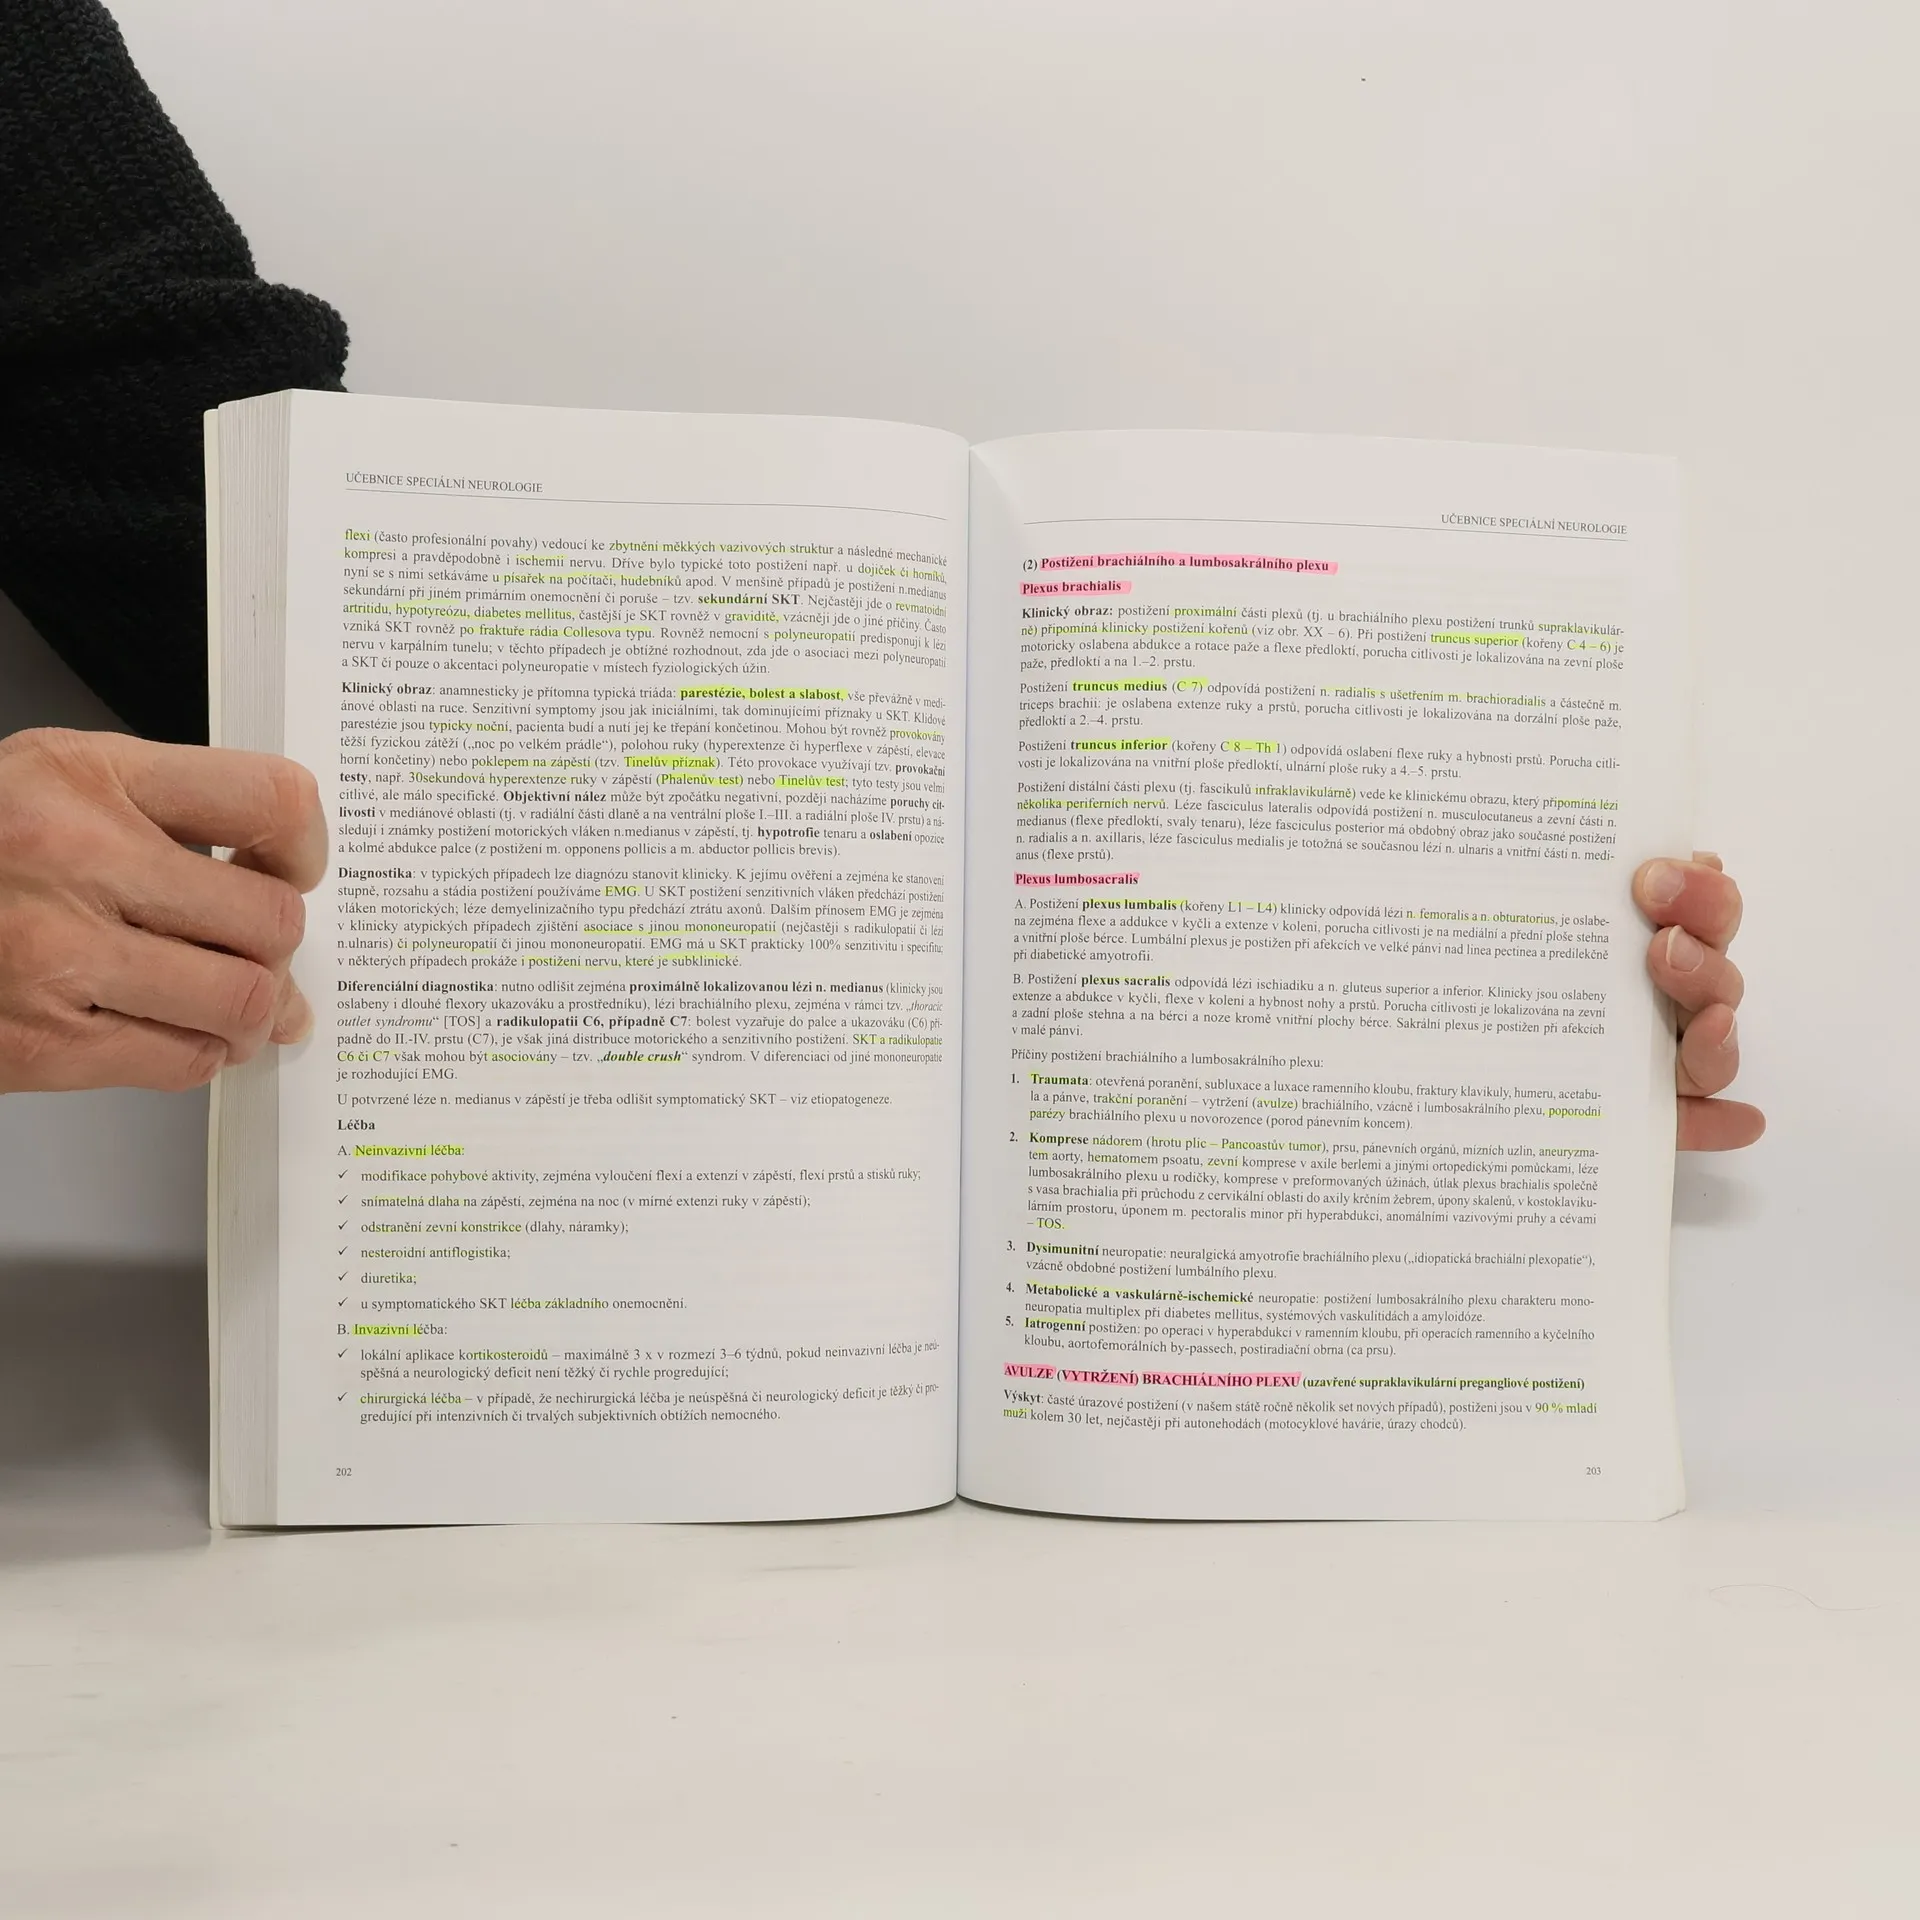 UČEBNICE SPECIÁLNÍ NEUROLOGIE
flexi (často profesionální povahy) vedoucí ke zbytnění měkkých vazivových struktur a následné mechanické
kompresi a pravděpodobně i ischemii nervu. Dříve bylo typické toto postižení např. u dojiček či horníků,
nyní se s nimi setkáváme u písařek na počítači, hudebníků apod. V menšině případů je postižení n.medianus
sekundární při jiném primárním onemocnění či poruše – tzv. sekundární SKT. Nejčastěji jde o revmatoidní
artritidu, hypotyreózu, diabetes mellitus, častější je SKT rovněž v graviditě, vzácněji jde o jiné příčiny. Často
vzniká SKT rovněž po fraktuře rádia Collesova typu. Rovněž nemocní s polyneuropatií predisponují k lézi
nervu v karpálním tunelu; v těchto případech je obtížné rozhodnout, zda jde o asociaci mezi polyneuropatií
a SKT či pouze o akcentaci polyneuropatie v místech fyziologických úžin.
Klinický obraz: anamnesticky je přítomna typická triáda: parestézie, bolest a slabost, vše převážně v medi-
ánové oblasti na ruce. Senzitivní symptomy jsou jak iniciálními, tak dominujícími příznaky u SKT. Klidové
parestézie jsou typicky noční, pacienta budí a nutí jej ke třepání končetinou. Mohou být rovněž provokovány
těžší fyzickou zátěží („noc po velkém prádle“), polohou ruky (hyperextenze či hyperflexe v zápěstí, elevace
horní končetiny) nebo poklepem na zápěstí (tzv. Tinelův příznak). Této provokace využívají tzv. provokační
testy, např. 30sekundová hyperextenze ruky v zápěstí (Phalenův test) nebo Tinelův test; tyto testy jsou velmi
citlivé, ale málo specifické. Objektivní nález může být zpočátku negativní, později nacházíme poruchy cit-
livosti v mediánové oblasti (tj. v radiální části dlaně a na ventrální ploše I.–III. a radiální ploše IV. prstu) a ná-
sledují i známky postižení motorických vláken n.medianus v zápěstí, tj. hypotrofie tenaru a oslabení opozice
a kolmé abdukce palce (z postižení m. opponens pollicis a m. abductor pollicis brevis).
Diagnostika: v typických případech lze diagnózu stanovit klinicky. K jejímu ověření a zejména ke stanovení
stupně, rozsahu a stádia postižení používáme EMG. U SKT postižení senzitivních vláken předchází postižení
vláken motorických; léze demyelinizačního typu předchází ztrátu axonů. Dalším přínosem EMG je zejména
v klinicky atypických případech zjištění asociace s jinou mononeuropatií (nejčastěji s radikulopatií či lézí
n.ulnaris) či polyneuropatií či jinou mononeuropatií. EMG má u SKT prakticky 100% senzitivitu i specifitu;
v některých případech prokáže i postižení nervu, které je subklinické.
Diferenciální diagnostika: nutno odlišit zejména proximálně lokalizovanou lézi n. medianus (klinicky jsou
oslabeny i dlouhé flexory ukazováku a prostředníku), lézi brachiálního plexu, zejména v rámci tzv. „thoracic
outlet syndromu“ [TOS] a radikulopatii C6, případně C7: bolest vyzařuje do palce a ukazováku (C6) pří-
padně do II.-IV. prstu (C7), je však jiná distribuce motorického a senzitivního postižení. SKT a radikulopatie
C6 či C7 však mohou být asociovány – tzv. „double crush“ syndrom. V diferenciaci od jiné mononeuropatie
je rozhodující EMG.
U potvrzené léze n. medianus v zápěstí je třeba odlišit symptomatický SKT – viz etiopatogeneze.
Léčba
A. Neinvazivní léčba:
✓ modifikace pohybové aktivity, zejména vyloučení flexí a extenzí v zápěstí, flexí prstů a stisků ruky;
✓ snímatelná dlaha na zápěstí, zejména na noc (v mírné extenzi ruky v zápěstí);
✓ odstranění zevní konstrikce (dlahy, náramky);
✓ nesteroidní antiflogistika;
✓ diuretika;
✓ u symptomatického SKT léčba základního onemocnění.
B. Invazivní léčba:
✓ lokální aplikace kortikosteroidů – maximálně 3 x v rozmezí 3–6 týdnů, pokud neinvazivní léčba je neú-
spěšná a neurologický deficit není těžký či rychle progredující;
✓ chirurgická léčba – v případě, že nechirurgická léčba je neúspěšná či neurologický deficit je těžký či pro-
gredující při intenzivních či trvalých subjektivních obtížích nemocného.
202
UČEBNICE SPECIÁLNÍ NEUROLOGIE
(2) Postižení brachiálního a lumbosakrálního plexu
Plexus brachialis
Klinický obraz: postižení proximální části plexů (tj. u brachiálního plexu postižení trunků supraklavikulár-
ně) připomíná klinicky postižení kořenů (viz obr. XX – 6). Při postižení truncus superior (kořeny C 4 – 6) je
motoricky oslabena abdukce a rotace paže a flexe předloktí, porucha citlivosti je lokalizována na zevní ploše
paže, předloktí a na 1.–2. prstu.
Postižení truncus medius (C 7) odpovídá postižení n. radialis s ušetřením m. brachioradialis a částečně m.
triceps brachii: je oslabena extenze ruky a prstů, porucha citlivosti je lokalizována na dorzální ploše paže,
předloktí a 2.–4. prstu.
Postižení truncus inferior (kořeny C 8 – Th 1) odpovídá oslabení flexe ruky a hybnosti prstů. Porucha citli-
vosti je lokalizována na vnitřní ploše předloktí, ulnární ploše ruky a 4.–5. prstu.
Postižení distální části plexu (tj. fascikulů infraklavikulárně) vede ke klinickému obrazu, který připomíná lézi
několika periferních nervů. Léze fasciculus lateralis odpovídá postižení n. musculocutaneus a zevní části n.
medianus (flexe předloktí, svaly tenaru), léze fasciculus posterior má obdobný obraz jako současné postižení
n. radialis a n. axillaris, léze fasciculus medialis je totožná se současnou lézí n. ulnaris a vnitřní části n. medi-
anus (flexe prstů).
Plexus lumbosacralis
A. Postižení plexus lumbalis (kořeny L1 – L4) klinicky odpovídá lézi n. femoralis a n. obturatorius, je oslabe-
na zejména flexe a addukce v kyčli a extenze v koleni, porucha citlivosti je na mediální a přední ploše stehna
a vnitřní ploše bérce. Lumbální plexus je postižen při afekcích ve velké pánvi nad linea pectinea a predilekčně
při diabetické amyotrofii.
B. Postižení plexus sacralis odpovídá lézi ischiadiku a n. gluteus superior a inferior. Klinicky jsou oslabeny
extenze a abdukce v kyčli, flexe v koleni a hybnost nohy a prstů. Porucha citlivosti je lokalizována na zevní
a zadní ploše stehna a na bérci a noze kromě vnitřní plochy bérce. Sakrální plexus je postižen při afekcích
v malé pánvi.
Příčiny postižení brachiálního a lumbosakrálního plexu:
1. Traumata: otevřená poranění, subluxace a luxace ramenního kloubu, fraktury klavikuly, humeru, acetabu-
la a pánve, trakční poranění – vytržení (avulze) brachiálního, vzácně i lumbosakrálního plexu, poporodní
parézy brachiálního plexu u novorozence (porod pánevním koncem).
2. Komprese nádorem (hrotu plic – Pancoastův tumor), prsu, pánevních orgánů, mízních uzlin, aneuryzma-
tem aorty, hematomem psoatu, zevní komprese v axile berlemi a jinými ortopedickými pomůckami, léze
lumbosakrálního plexu u rodičky, komprese v preformovaných úžinách, útlak plexus brachialis společně
s vasa brachialia při průchodu z cervikální oblasti do axily krčním žebrem, úpony skalenů, v kostoklaviku-
lárním prostoru, úponem m. pectoralis minor při hyperabdukci, anomálními vazivovými pruhy a cévami
– TOS.
3. Dysimunitní neuropatie: neuralgická amyotrofie brachiálního plexu („idiopatická brachiální plexopatie“),
vzácně obdobné postižení lumbálního plexu.
4. Metabolické a vaskulárně-ischemické neuropatie: postižení lumbosakrálního plexu charakteru mono-
neuropatia multiplex při diabetes mellitus, systémových vaskulitidách a amyloidóze.
5. Iatrogenní postižen: po operaci v hyperabdukci v ramenním kloubu, při operacích ramenního a kyčelního
kloubu, aortofemorálních by-passech, postiradiační obrna (ca prsu).
AVULZE (VYTRŽENÍ) BRACHIÁLNÍHO PLEXU (uzavřené supraklavikulární pregangliové postižení)
Výskyt: časté úrazové postižení (v našem státě ročně několik set nových případů), postiženi jsou v 90 % mladí
muži kolem 30 let, nejčastěji při autonehodách (motocyklové havárie, úrazy chodců).
203